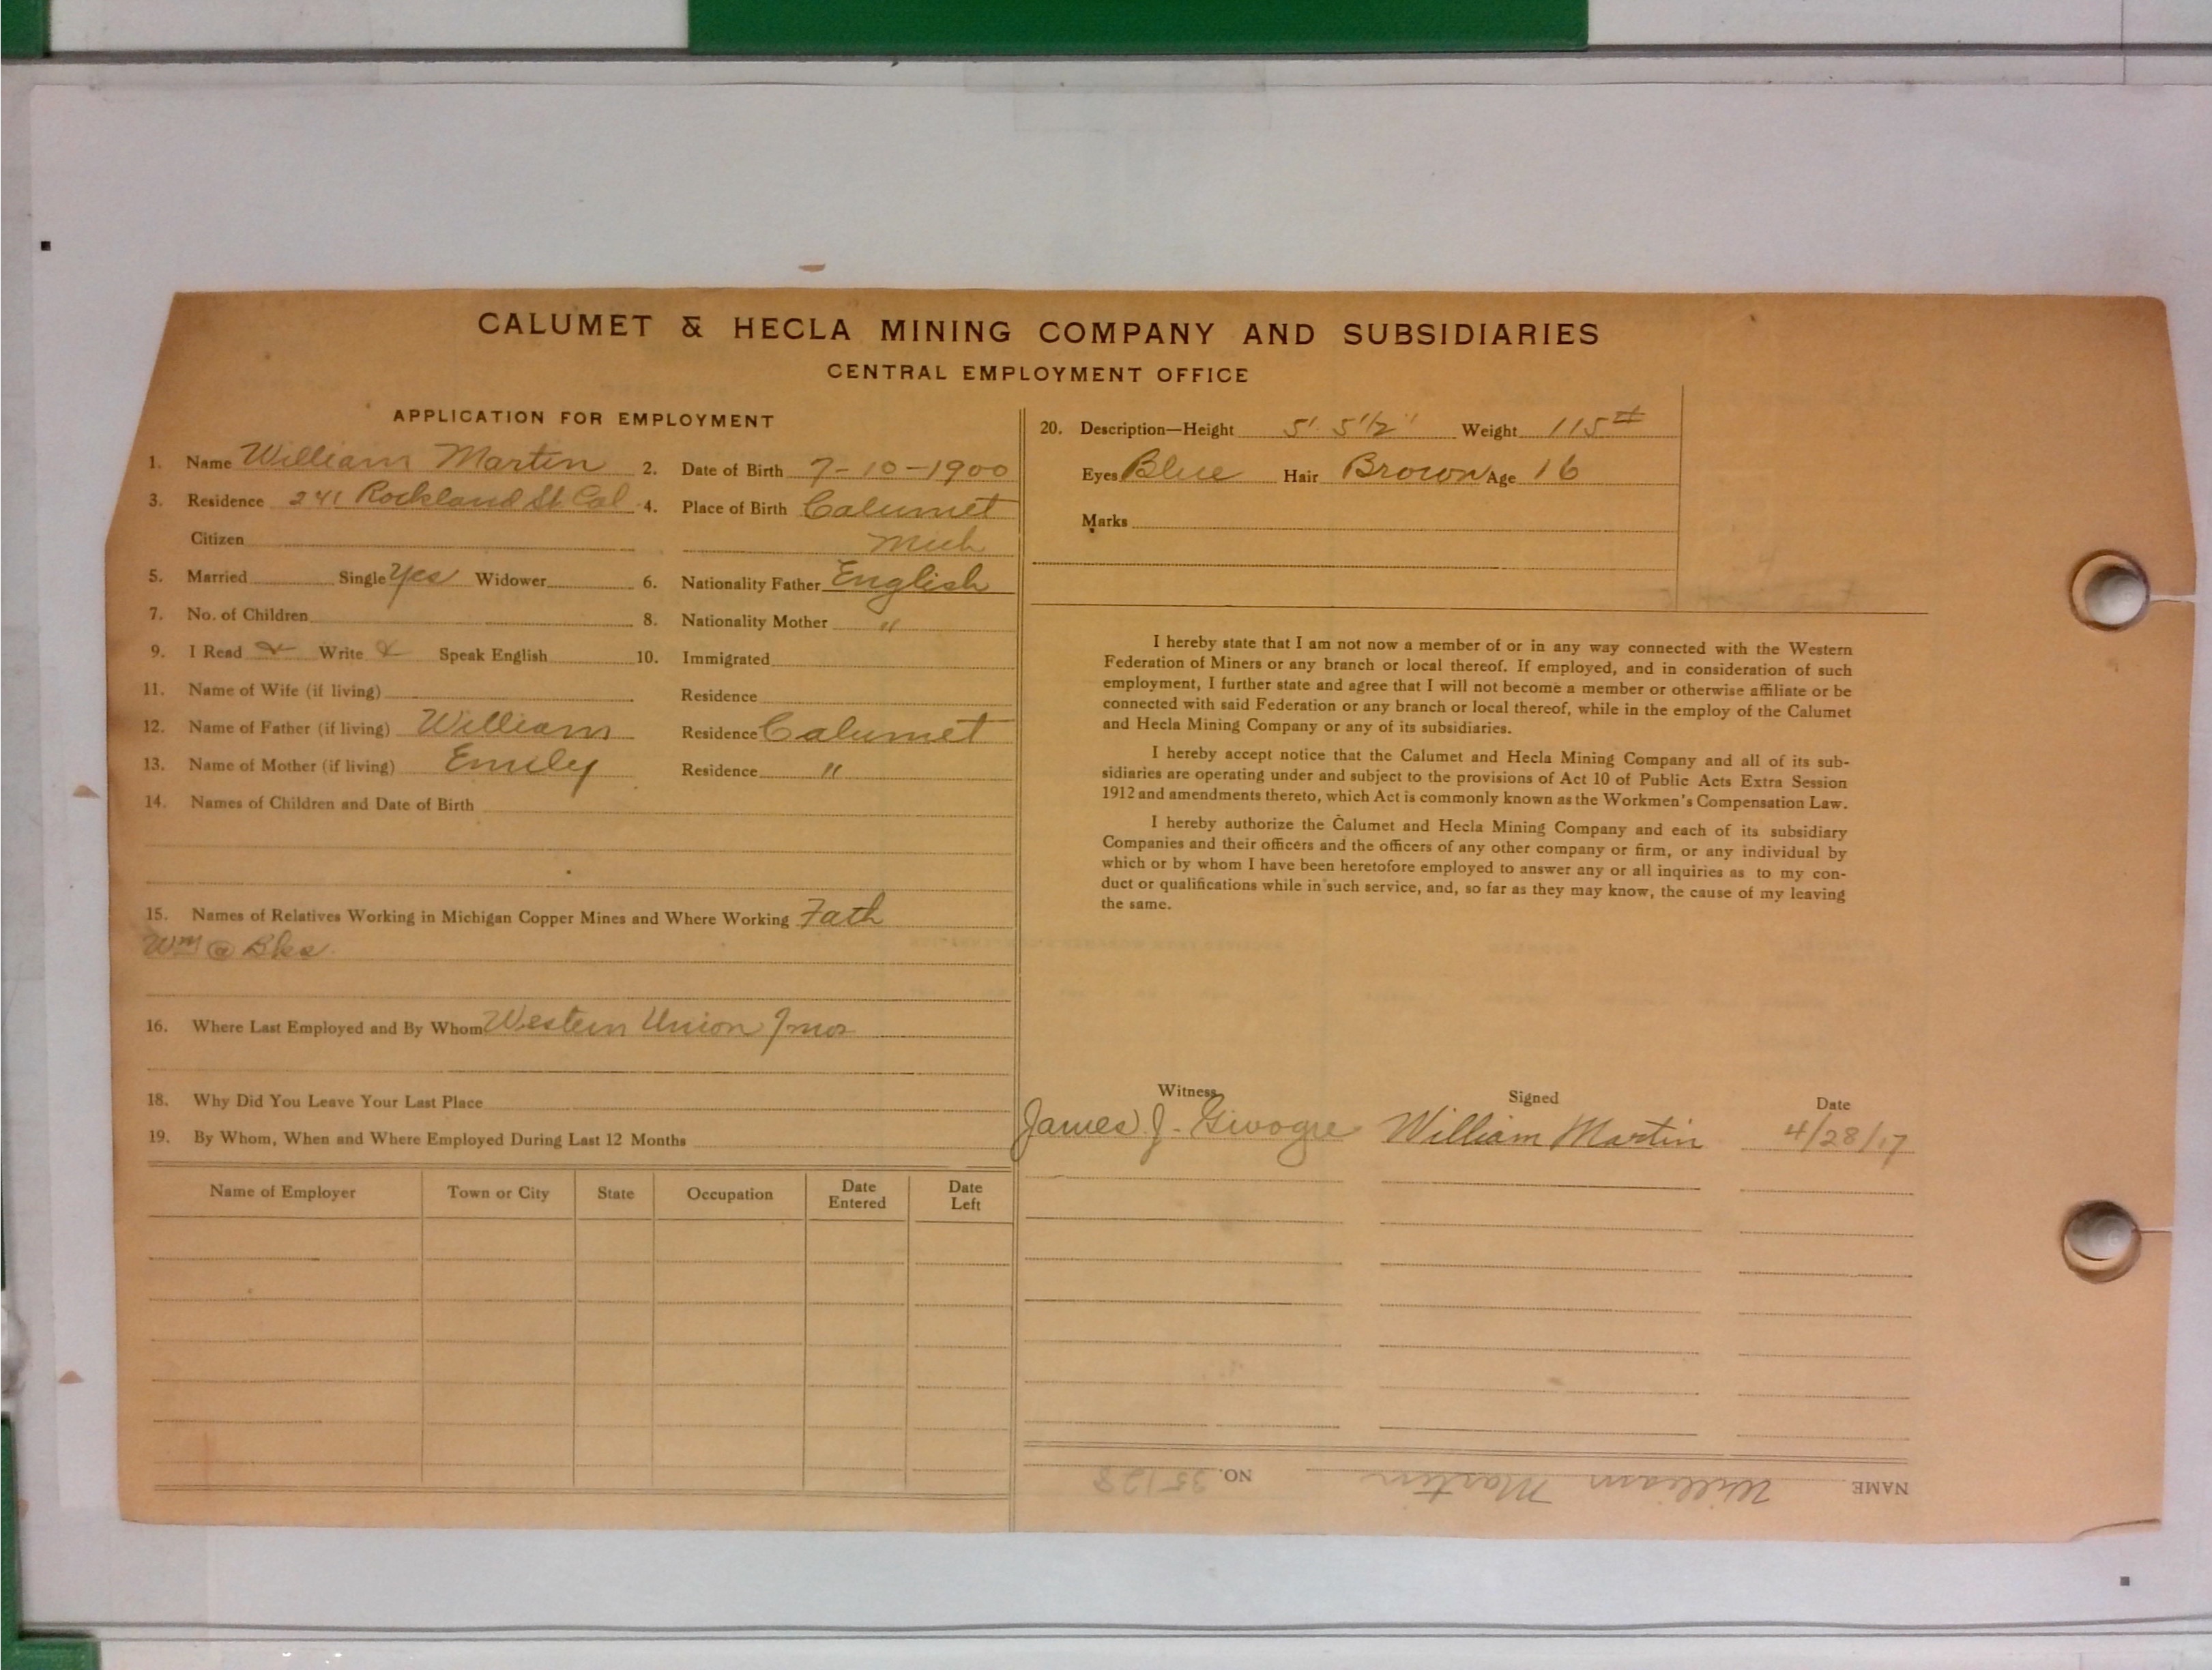 CALUMET & HECLA MINING COMPANY AND SUBSIDIARIES
CENTRAL EMPLOYMENT OFFICE
APPLICATION FOR EMPLOYMENT
1. Name William Martin 2. Date of Birth 7-10-1900
3. Residence 241 Rockland St Cal 4. Place of Birth Calumet
Citizen Mich
5. Married Single Yes Widower 6. Nationality Father English
7. No. of Children 8. Nationality Mother "
9. I Read & Write & Speak English 10. Immigrated
11. Name of Wife (if living) Residence
12. Name of Father (if living) William Residence Calumet
13. Name of Mother (if living) Emily Residence "
14. Names of Children and Date of Birth
15. Names of Relatives Working in Michigan Copper Mines and Where Working Fath
Wm @ Bks.
16. Where Last Employed and By Whom Western Union
18. Why Did You Leave Your Last Place
19. By Whom, When and Where Employed During Last 12 Months
Name of Employer Town or City State Occupation Date Entered Date Left
20. Description—Height 5' 5 1/2" Weight 115#
Eyes Blue Hair Brown Age 16
Marks
I hereby state that I am not now a member of or in any way connected with the Western
Federation of Miners or any branch or local thereof. If employed, and in consideration of such
employment, I further state and agree that I will not become a member or otherwise affiliate or be
connected with said Federation or any branch or local thereof, while in the employ of the Calumet
and Hecla Mining Company or any of its subsidiaries.
I hereby accept notice that the Calumet and Hecla Mining Company and all of its sub-
sidiaries are operating under and subject to the provisions of Act 10 of Public Acts Extra Session
1912 and amendments thereto, which Act is commonly known as the Workmen's Compensation Law.
I hereby authorize the Calumet and Hecla Mining Company and each of its subsidiary
Companies and their officers and the officers of any other company or firm, or any individual by
which or by whom I have been heretofore employed to answer any or all inquiries as to my con-
duct or qualifications while in such service, and, so far as they may know, the cause of my leaving
the same.
Witness Signed Date
James J. William Martin 4/28/17
NAME William Martin NO. 35128